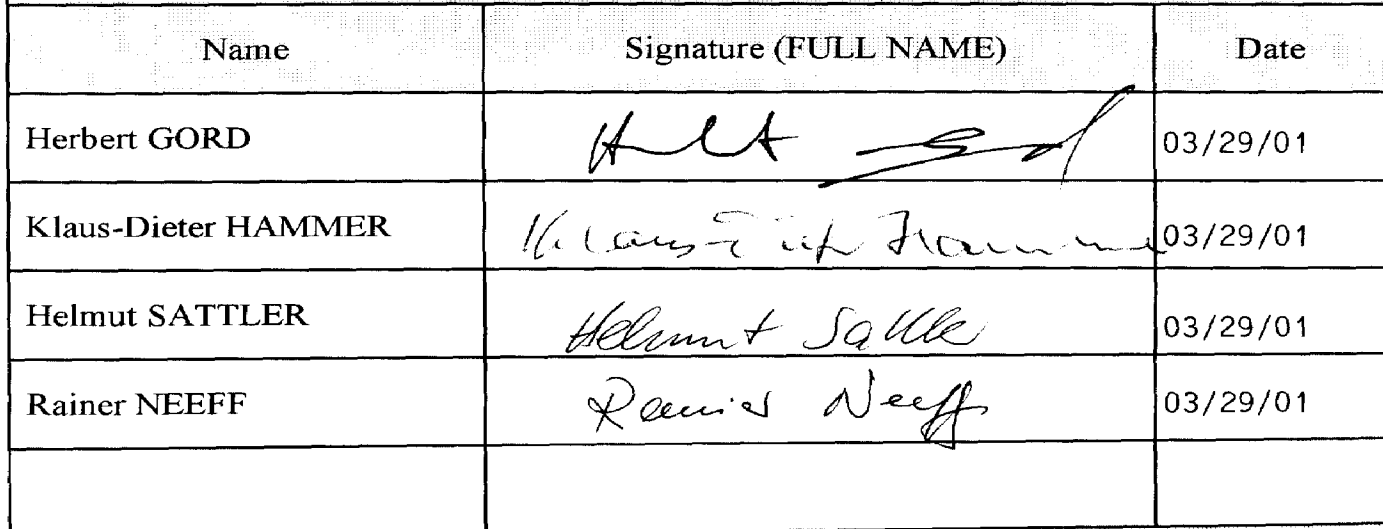 Name Signature (FULL NAME) Date
Herbert GORD 03/29/01
Klaus-Dieter HAMMER Klaus-Dieter Hammer 03/29/01
Helmut SATTLER Helmut Sattler 03/29/01
Rainer NEEFF Rainer Neeff 03/29/01